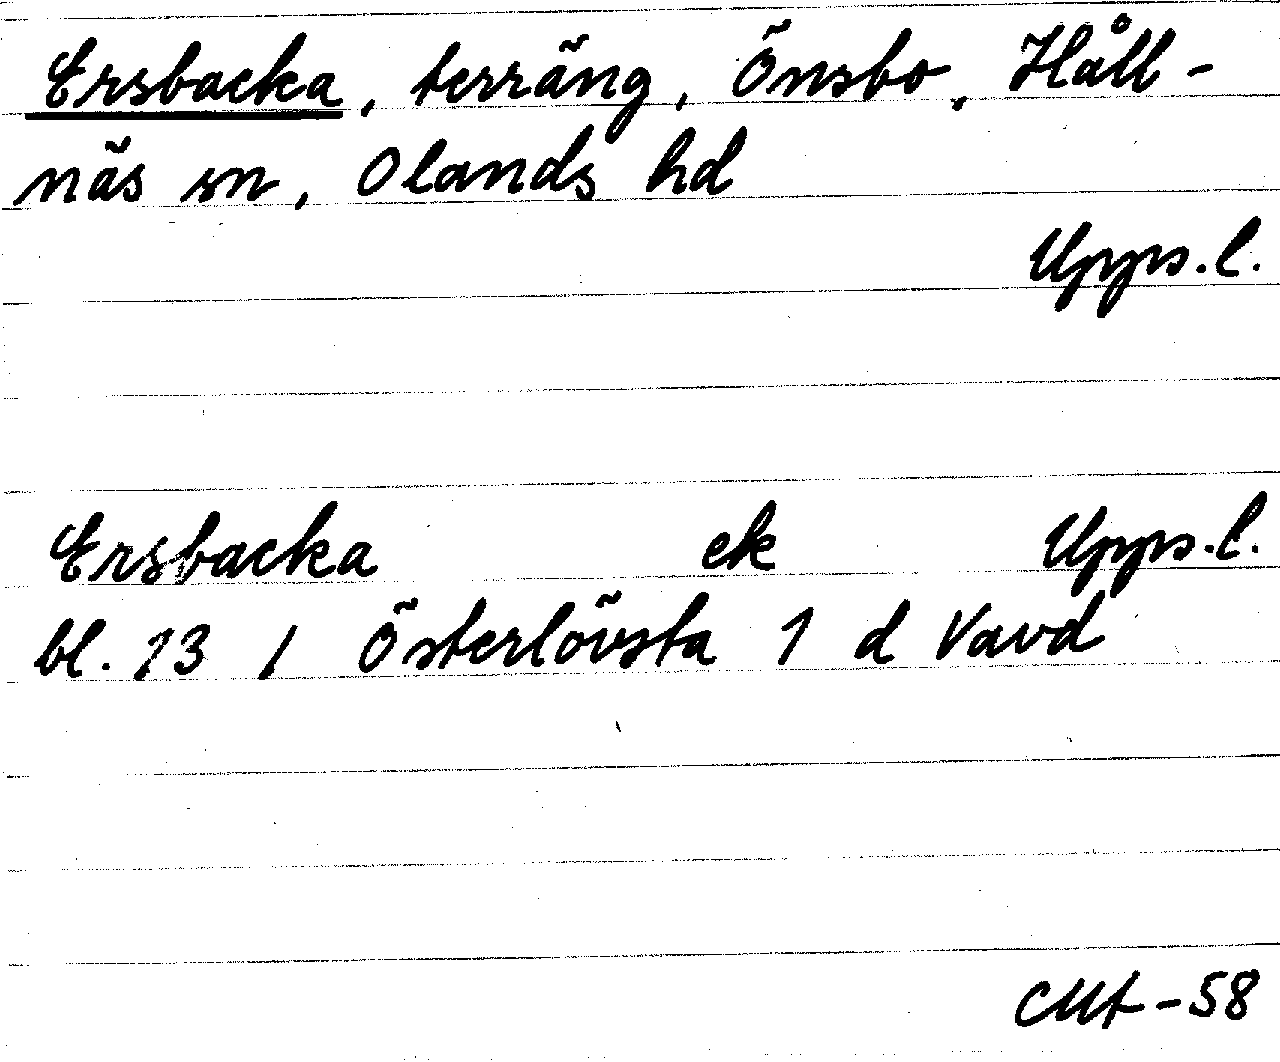 Ersbacka, terräng, Önsbo, Håll-
näs sn, Olands hd
Upps.l.
Ersbacka ek Upps.l.
bl. 13 1 Österlövsta 1 d Vavd